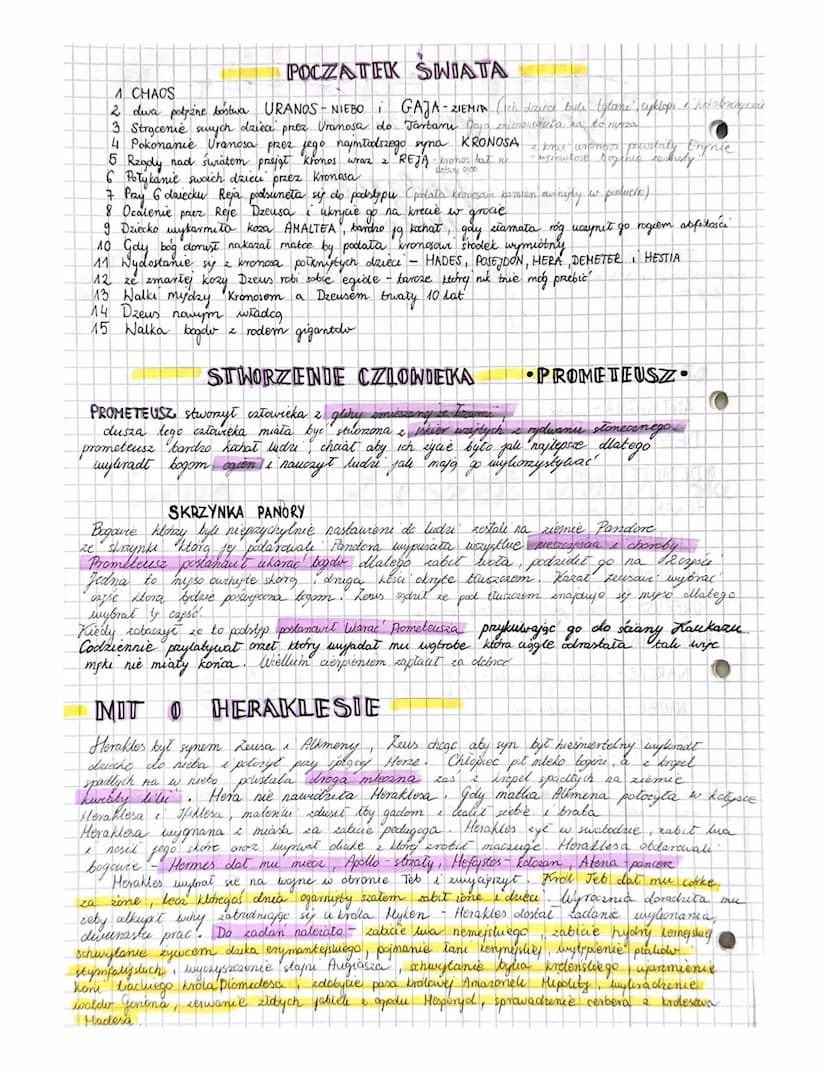 POCZATEK ŚWIATA
1 CHAOS
2 dwa potężne bóstwa URANOS - NIEBO i GAJA - ZIEMIA (ich dziećmi byli tytani, cyklopi i
3 Strącenie swych dzieci przez Uranosa do Tartaru Gaja znienawidziła za to męża
4 Pokonanie Uranosa przez jego najmłodszego syna KRONOSA z krwi uranosa powstały Erynie
5 Rządy nad światem przejął Kronos wraz z REJĄ - kronos bał się - boginie zemsty
6 Połykanie swoich dzieci przez Kronosa
7 Przy 6 dziecku Reja posunęła się do podstępu (podała Kronosowi kamień owinięty w pieluchę)
8 Ocalenie przez Reje Dzeusa i ukrycie go na krecie w grocie
9 Dziecko wykarmiła koza AMALTEA, bardzo ją kochał, gdy złamała róg uczynił go rogiem obfitości
10 Gdy bóg dorusł nakazał matce by podała kronosowi środek wymiotny
11 Wydostanie się z kronosa połkniętych dzieci - HADES, POSEJDON, HERA, DEMETER i HESTIA
12 ze zmarłej kozy Dzeus robi sobie egide - tarcze której nik nie mógł przebić
13 Walki między Kronosem a Dzeusem trwały 10 lat
14 Dzeus nowym władcą
15 Walka bogów z rodem gigantów
STWORZENIE CZLOWIEKA • PROMETEUSZ •
PROMETEUSZ stworzył człowieka z gliny zmieszanej ze łzami
dusza tego człowieka miała być stworzona z iskier wziętych z rydwanu słonecznego.
prometeusz bardzo kochał ludzi, chciał aby ich życie było jak najlepsze dlatego
wykradł bogom ogień i nauczył ludzi jak mają go wykorzystywać
SKRZYNKA PANORY
Bogowie którzy byli nieprzychylnie nastawieni do ludzi zesłali na ziemię Pandore
ze skrzynki którą jej podarowali Pandora wypuściła wszystkie nieszczęścia i choroby
Prometeusz postanowił ukarać bogów dlatego zabił woła, podzielił go na 2 części
Jedna to mięso owinięte skórą i druga kości okryte tłuszczem. Kazał zeusowi wybrać
część która będzie poświęcona bogom. Zeus sądził że pod tłuszczem znajduje się mięso dlatego
wybrał tę część.
Kiedy zobaczył że to podstęp postanowił ukarać Prometeusza przykuwając go do ściany Kaukazu
Codziennie przylatywał orzeł który wyjadał mu wątrobę która ciągle odrastała tak więc
męki nie miały końca. Wielkim cierpieniem zapłacił za dobroć
MIT O HERAKLESIE
Herakles był synem Zeusa i Alkmeny, Zeus chcąc aby syn był nieśmiertelny wykradł
dziecko do nieba i położył przy śpiącej Herze. Chłopiec pił mleko bogini, a z kropel
spadłych na w niebo powstała droga mleczna zaś z kropel spadłych na ziemię
kwiaty lilii. Hera nie nawidziła Heraklesa. Gdy matka Alkmena położyła w kołysce
Heraklesa i Ifiklesa, maleńki zdusił łby gadom i ocalił siebie i brata
Heraklesa wygnano z miasta za zabicie pedagoga. Herakles żył w swobodzie, zabił lwa
i nosił jego skórę oraz wyrwał z której zrobił maczugę. Heraklesa obdarowali
bogowie - Hermes dał mu miecz, Apollo - strzały, Hefajstos - kołczan, Atena - pancerz
Herakles wybrał się na wojnę w obronie Teb i zwyciężył. Król Teb dał mu córkę
za żonę, lecz któregoś dnia ogarnięty szałem zabił żonę i dzieci. Wyrocznia doradziła mu
żeby odkupił winy zatrudniając się u króla Myken - Herakles dostał zadanie wykonania
dwunastu prac. Do zadań należało - zabicie lwa nemejskiego, zabicie hydry lernejskiej
schwytanie żywcem dzika erymantejskiego, pojmanie łani kerynejskiej, wytępienie ptaków
stymfalijskich, wyczyszczenie stajni Augiasza, schwytanie byka kreteńskiego, ujarzmienie
koni trackiego króla Diomedesa, zdobycie pasa królowej Amazonek Hipolity, wykradzenie
wołów Geriona, zerwanie złotych jabłek z ogrodu Hesperyd, sprowadzenie cerbera z królestwa
Hadesa.